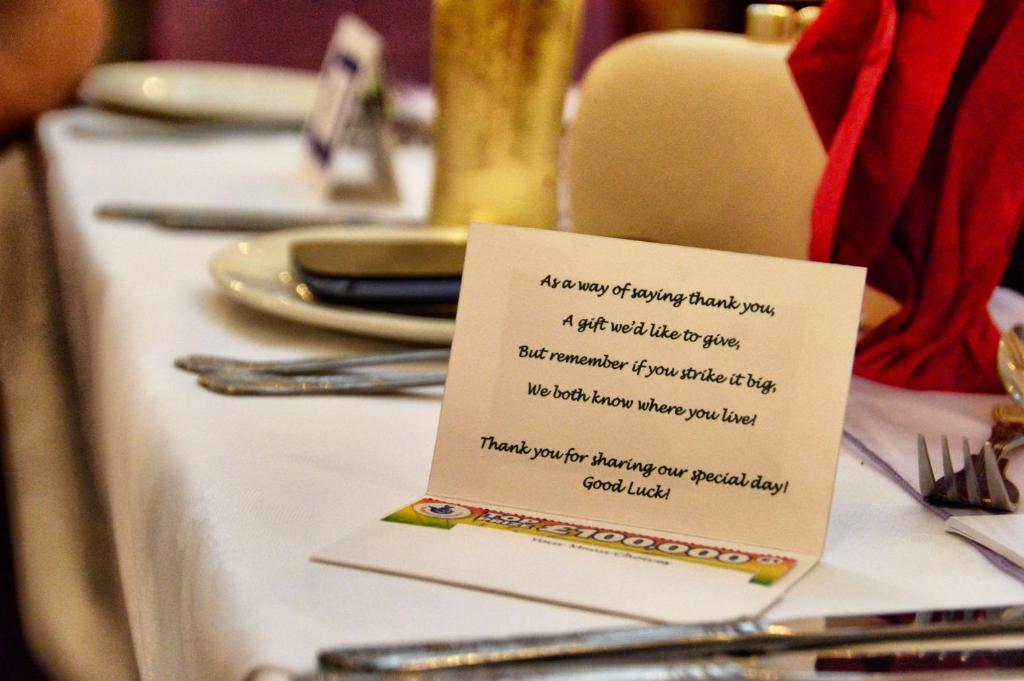 As a way of saying thank you,
A gift we'd like to give,
But remember if you strike it big,
We both know where you live!
Thank you for sharing our special day!
Good Luck!
TOP PRIZE £100,000
Your Menu Choices